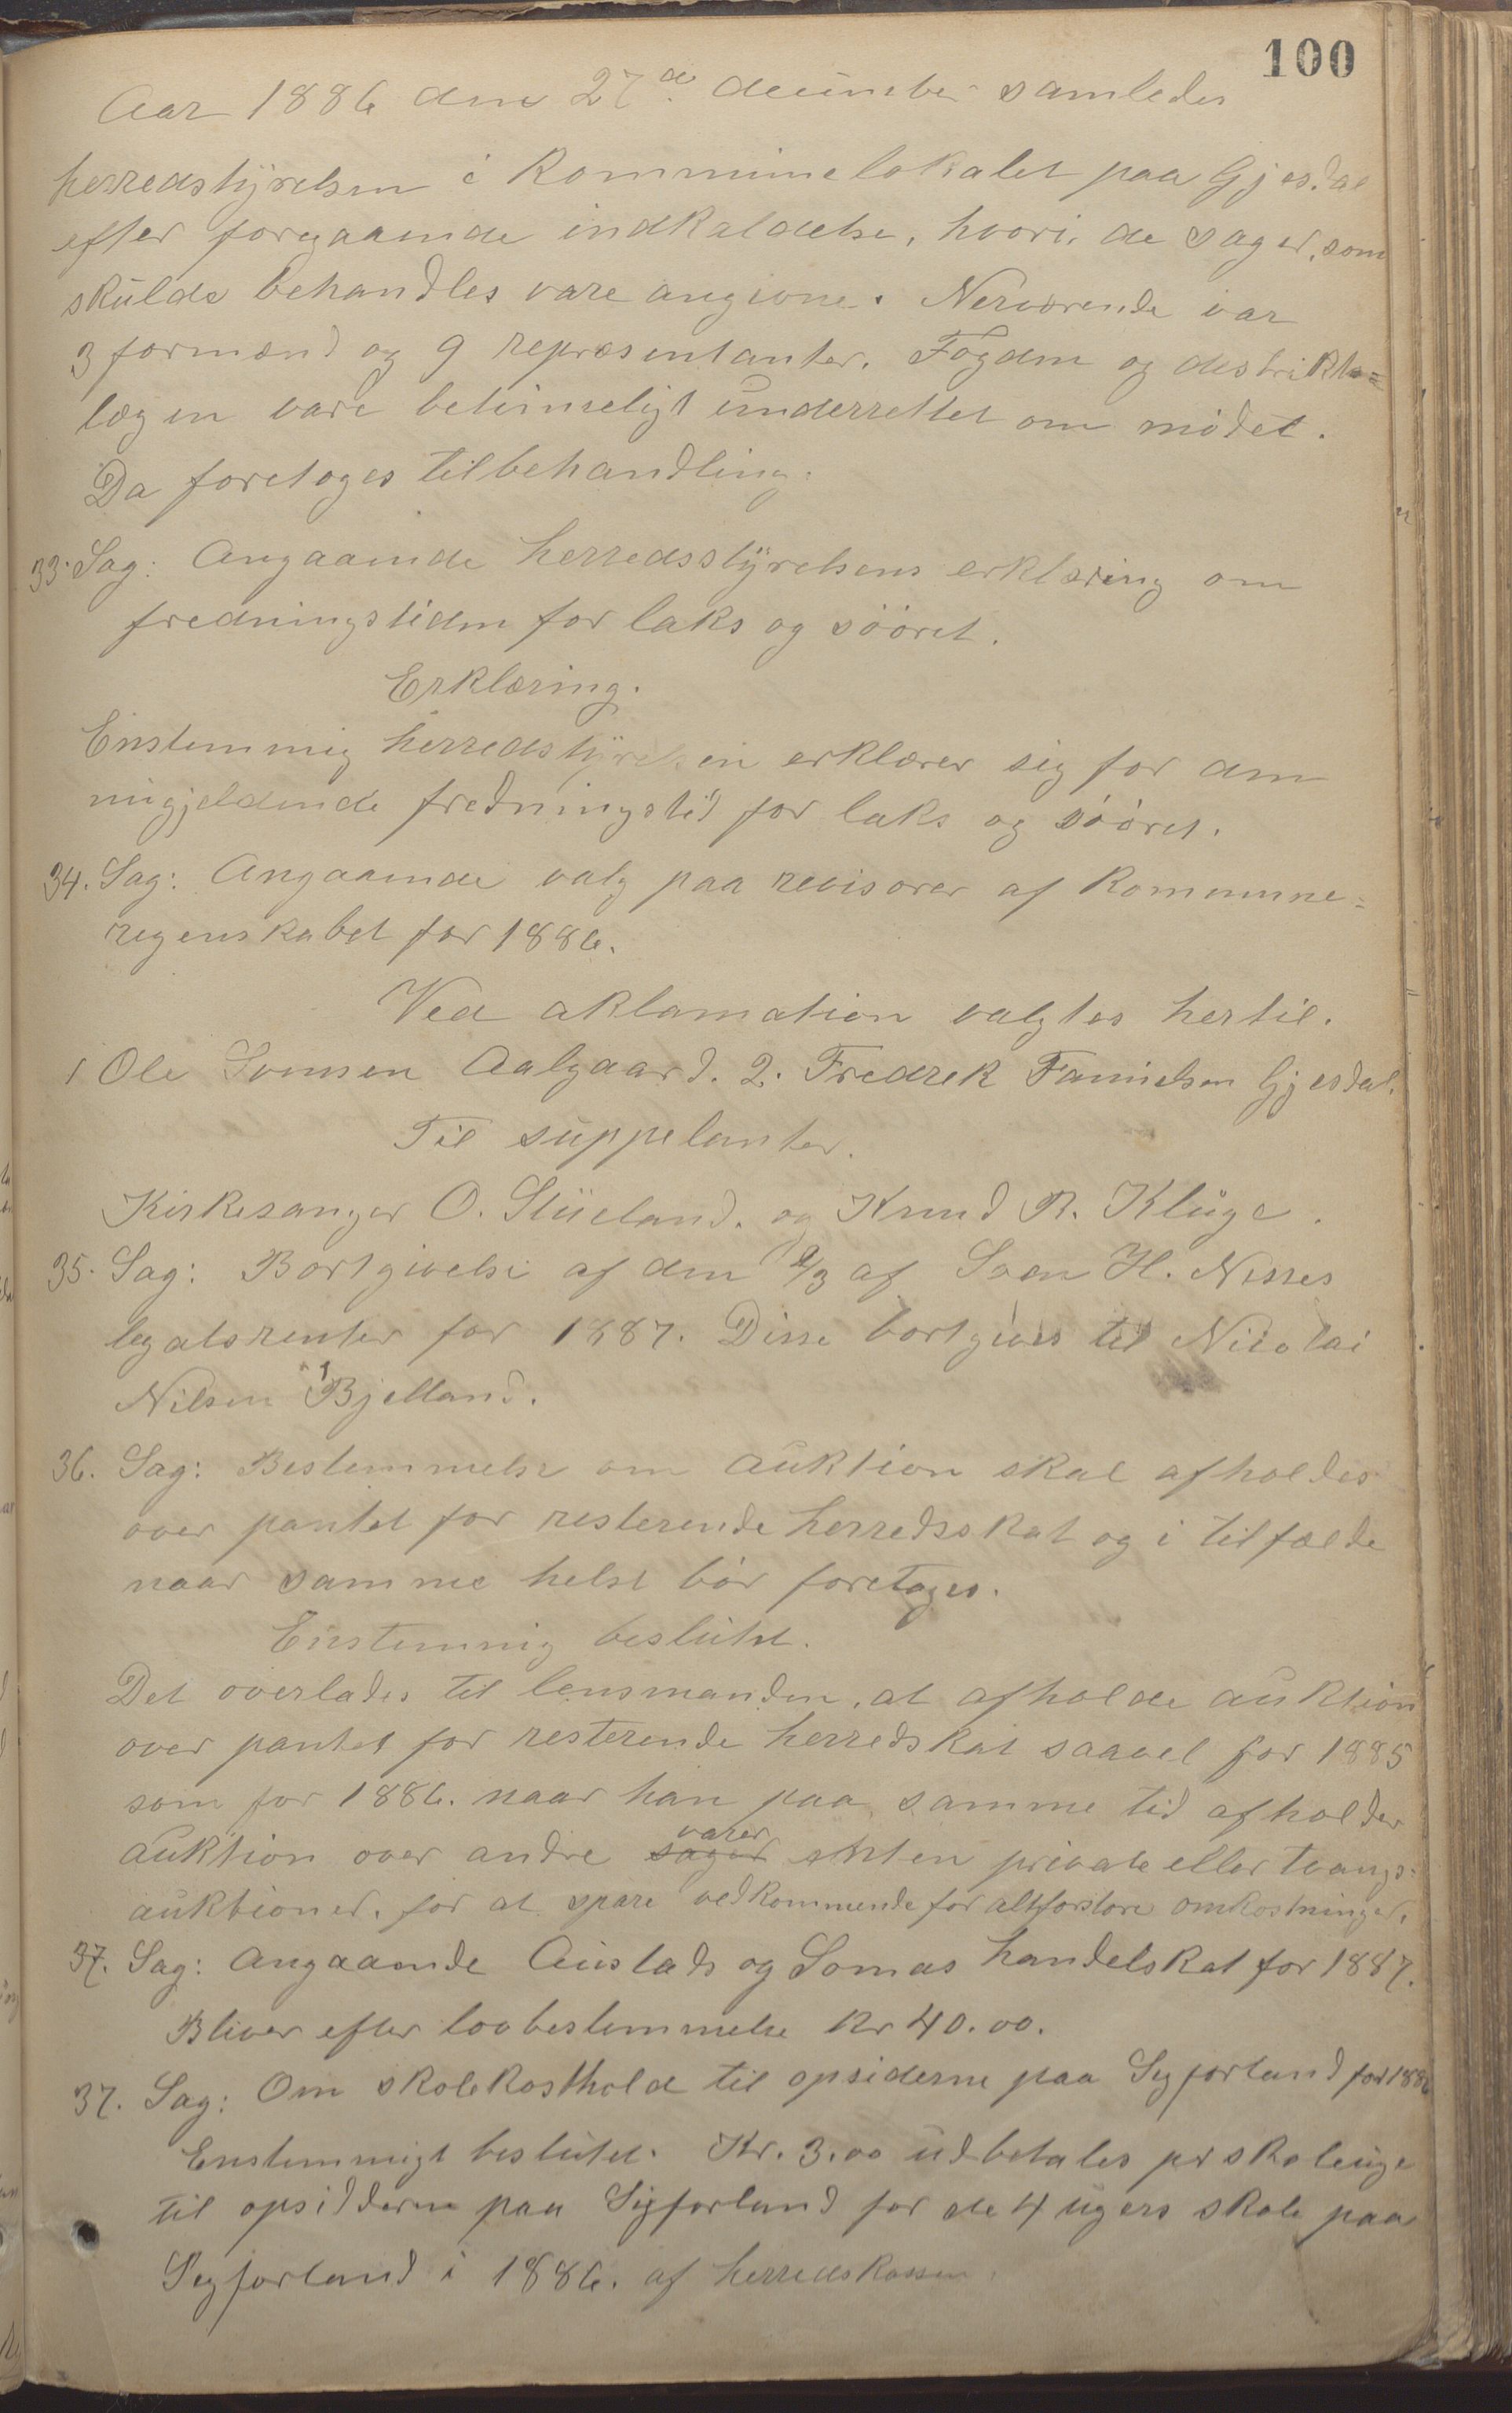 100
Aar 1886 den 27de december samledes
herredstyrelsen i kommunelokalet paa Gjesdal
efter foregaaende indkaldelse, hvori de sager, som
skulde behandles vare angivne. Nerværende var
3 formænd og 9 repræsentanter. Fogden og distrikts=
lægen vare betimeligt underrettet om mødet.
Da foretoges til behandling.
33. Sag: Angaaende herredsstyrelsens erklæring om
fredningstiden for laks og søøret.
Erklæring.
Enstemmig herredstyrelsen erklærer sig for den
nugjeldende fredningstid for laks og søøret.
34. Sag: Angaaende valg paa revisorer af kommune=
regenskabet for 1886.
Ved aklamation valgtes hertil.
1 Ole Svensen Aalgaard. 2. Fredrek Gjesdal.
Til suppelanter.
Kirkesanger O. Stueland. og Knud R. Kluge.
35. Sag: Bortgivelse af den 2/3 af Sven H. Nesses
legatsrenter for 1887. Disse bortgives til Nicolai
Nilsen Bjelland.
36. Sag: Bestemmelse om auktion skal afholdes
over pantet for resterende herredsskat og i tilfælde
naar samme helst bør foretages.
Enstemmig beslutet.
Det overlades til lensmanden, at afholde auktion
over pantet for resterende herredskat saavel for 1885
som for 1886. naar han paa samme tid afholder
varer
auktion over andre sager enten private eller tvangs=
auktioner. for at spare vedkommende for altforstore omkostninger.
37. Sag: Angaaende Austads og Somas handelskat for 1887.
Bliver efter lovbestemmelse kr 40.00.
37. Sag: Om skolekosthold til opsiderne paa Segjorland for 1886
Enstemmigt beslutet. Kr. 3.00 udbetales pr skoleuge
til opsidderne paa Sigjorland for de 4 ugers skole paa
Segjorland i 1886. af herredskassen.